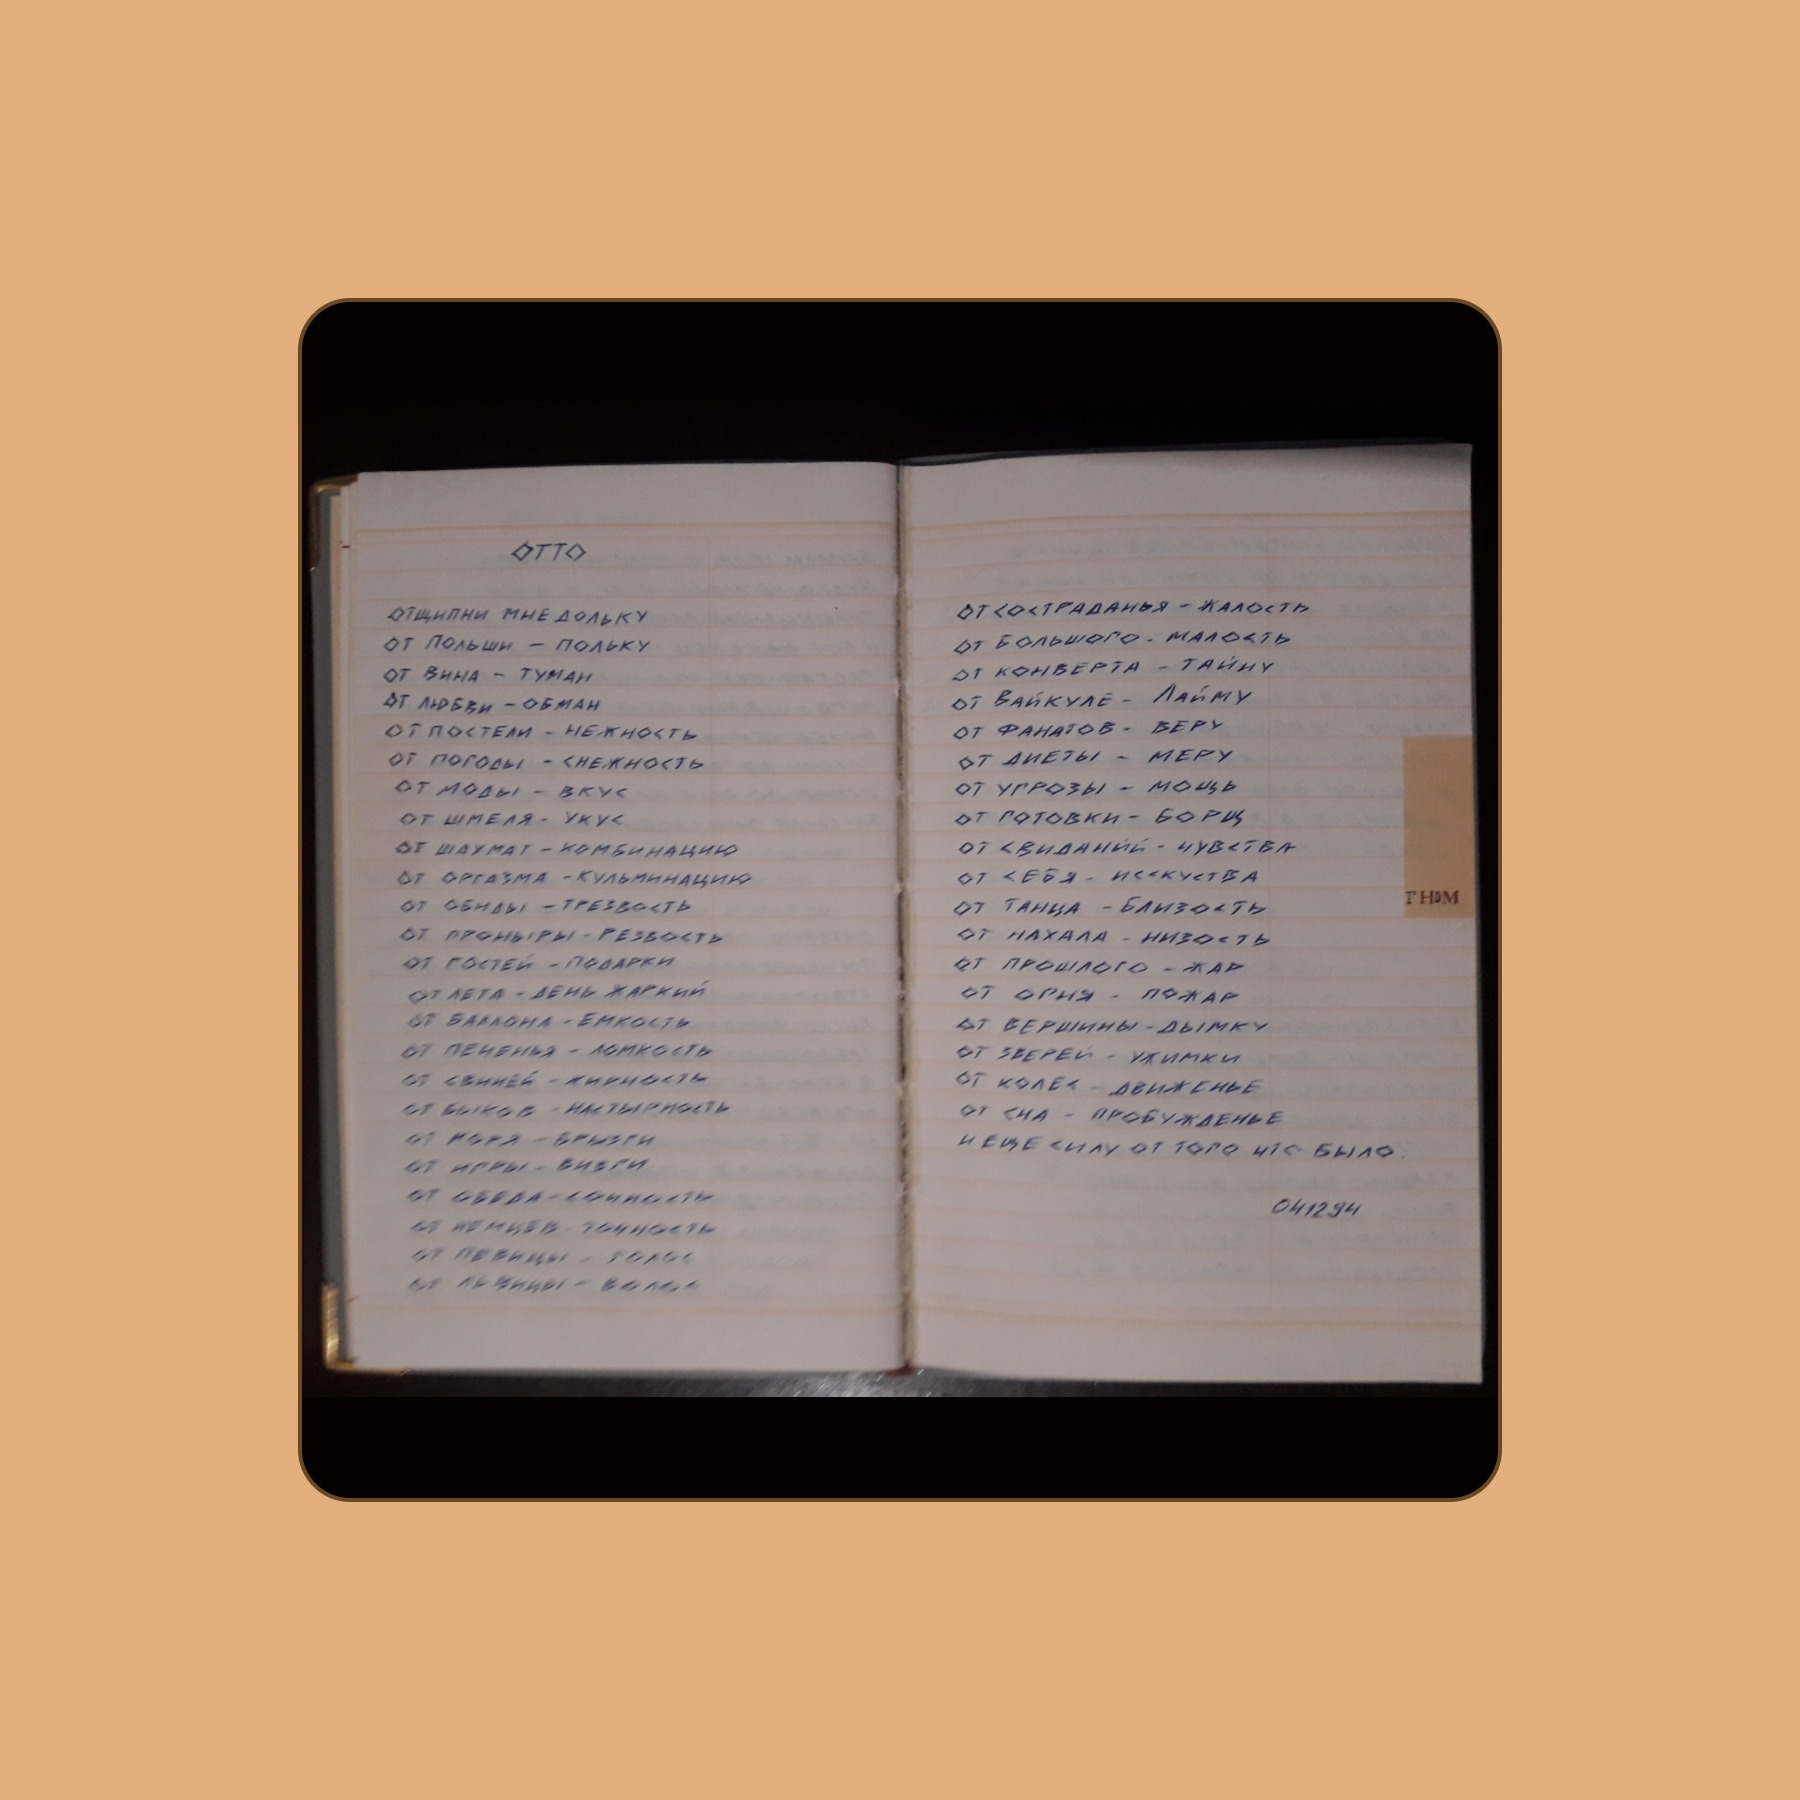 ОТТО
ОТЩИПНИ МНЕ ДОЛЬКУ
ОТ ПОЛЬШИ – ПОЛЬКУ
ОТ ВИНА – ТУМАН
ОТ ЛЮБВИ – ОБМАН
ОТ ПОСТЕЛИ – НЕЖНОСТЬ
ОТ ПОГОДЫ – СНЕЖНОСТЬ
ОТ МОДЫ – ВКУС
ОТ ШМЕЛЯ – УКУС
ОТ ШАХМАТ – КОМБИНАЦИЮ
ОТ ОРГАЗМА – КУЛЬМИНАЦИЮ
ОТ ОБИДЫ – ТРЕЗВОСТЬ
ОТ ПРОНЫРЫ – РЕЗВОСТЬ
ОТ ГОСТЕЙ – ПОДАРКИ
ОТ ЛЕТА – ДЕНЬ ЖАРКИЙ
ОТ БАЛЛОНА – ЕМКОСТЬ
ОТ ПЕЧЕНЬЯ – ЛОМКОСТЬ
ОТ СВИНЕЙ – ЖИРНОСТЬ
ОТ БЫКОВ – НАСТЫРНОСТЬ
ОТ МОРЯ – БРЫЗГИ
ОТ ИГРЫ – ВИЗГИ
ОТ ОБЕДА – СОННОСТЬ
ОТ НЕМЦЕВ – ТОЧНОСТЬ
ОТ ПЕВИЦЫ – ГОЛОС
ОТ ЛЬВИЦЫ – ВОЛОС
ОТ СОСТРАДАНЬЯ – ЖАЛОСТЬ
ОТ БОЛЬШОГО – МАЛОСТЬ
ОТ КОНВЕРТА – ТАЙНУ
ОТ ВАЙКУЛЕ – ЛАЙМУ
ОТ ФАНАТОВ – ВЕРУ
ОТ ДИЕТЫ – МЕРУ
ОТ УГРОЗЫ – МОЩЬ
ОТ ГОТОВКИ – БОРЩ
ОТ СВИДАНИЙ – ЧУВСТВА
ОТ СЕБЯ – ИССКУСТВА
ОТ ТАНЦА – БЛИЗОСТЬ
ОТ НАХАЛА – НИЗОСТЬ
ОТ ПРОШЛОГО – ЖАР
ОТ ОГНЯ – ПОЖАР
ОТ ВЕРШИНЫ – ДЫМКУ
ОТ ЗВЕРЕЙ – УЖИМКИ
ОТ КОЛЕС – ДВИЖЕНЬЕ
ОТ СНА – ПРОБУЖДЕНЬЕ
И ЕЩЕ СИЛУ ОТ ТОГО ЧТО БЫЛО.
041294
ГНОМ